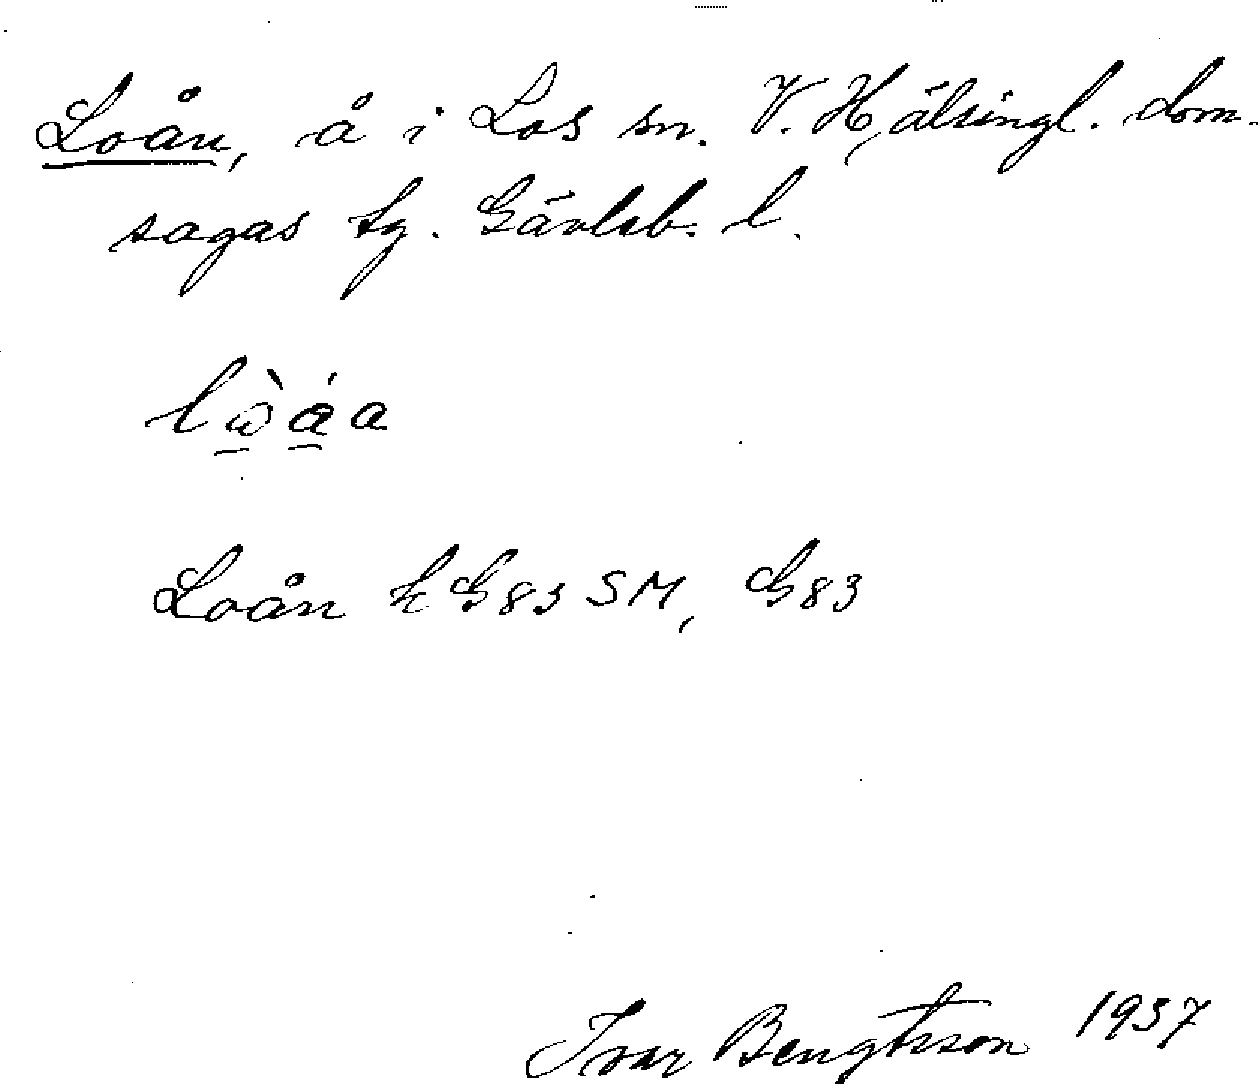 Loån, å i Los sn. V. Hälsingl. dom-
sagas tg. Gävleb. l.
Loån k G83 SM, G83
Ivar Bengtsson 1937